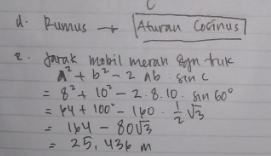 d. Rumus → Aturan Cosinus
e. Jarak mobil merah dgn truk
A² + b² - 2 Ab . sin c
= 8² + 10² - 2.8.10. sin 60°
= 64 + 100 - 160 . 1/2 √3
= 164 - 80√3
= 25,436 m